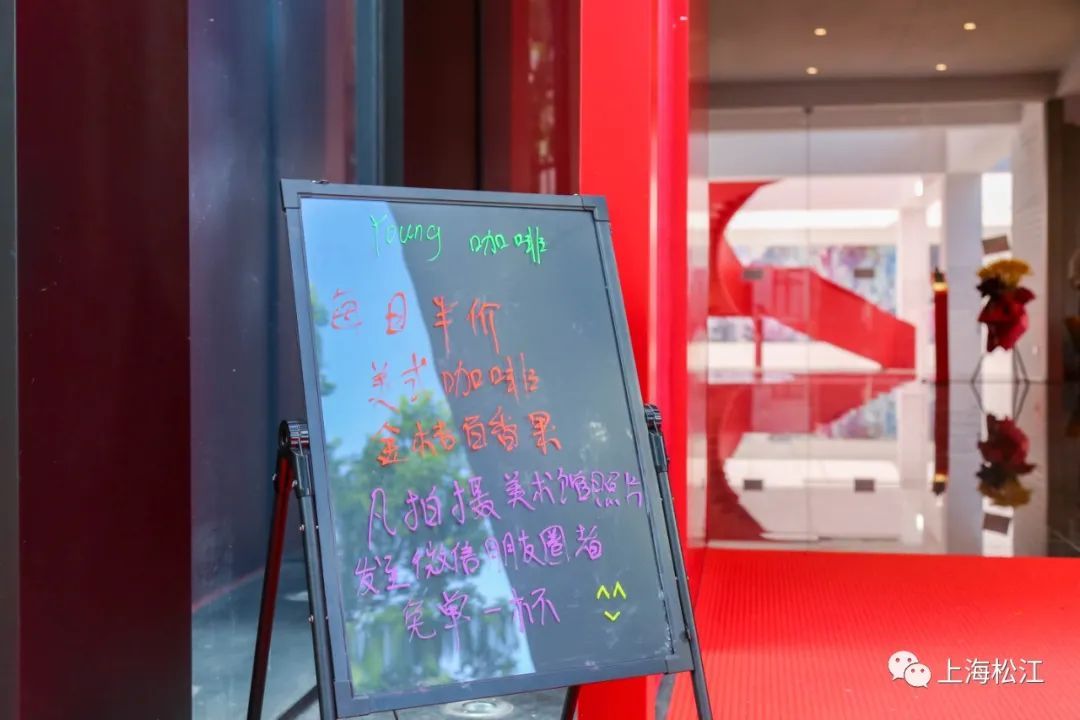 Young 咖啡
每日半价
美式咖啡
金桔百香果
凡拍摄美术馆照片
发至微信朋友圈者
免单一杯 ^^
上海松江